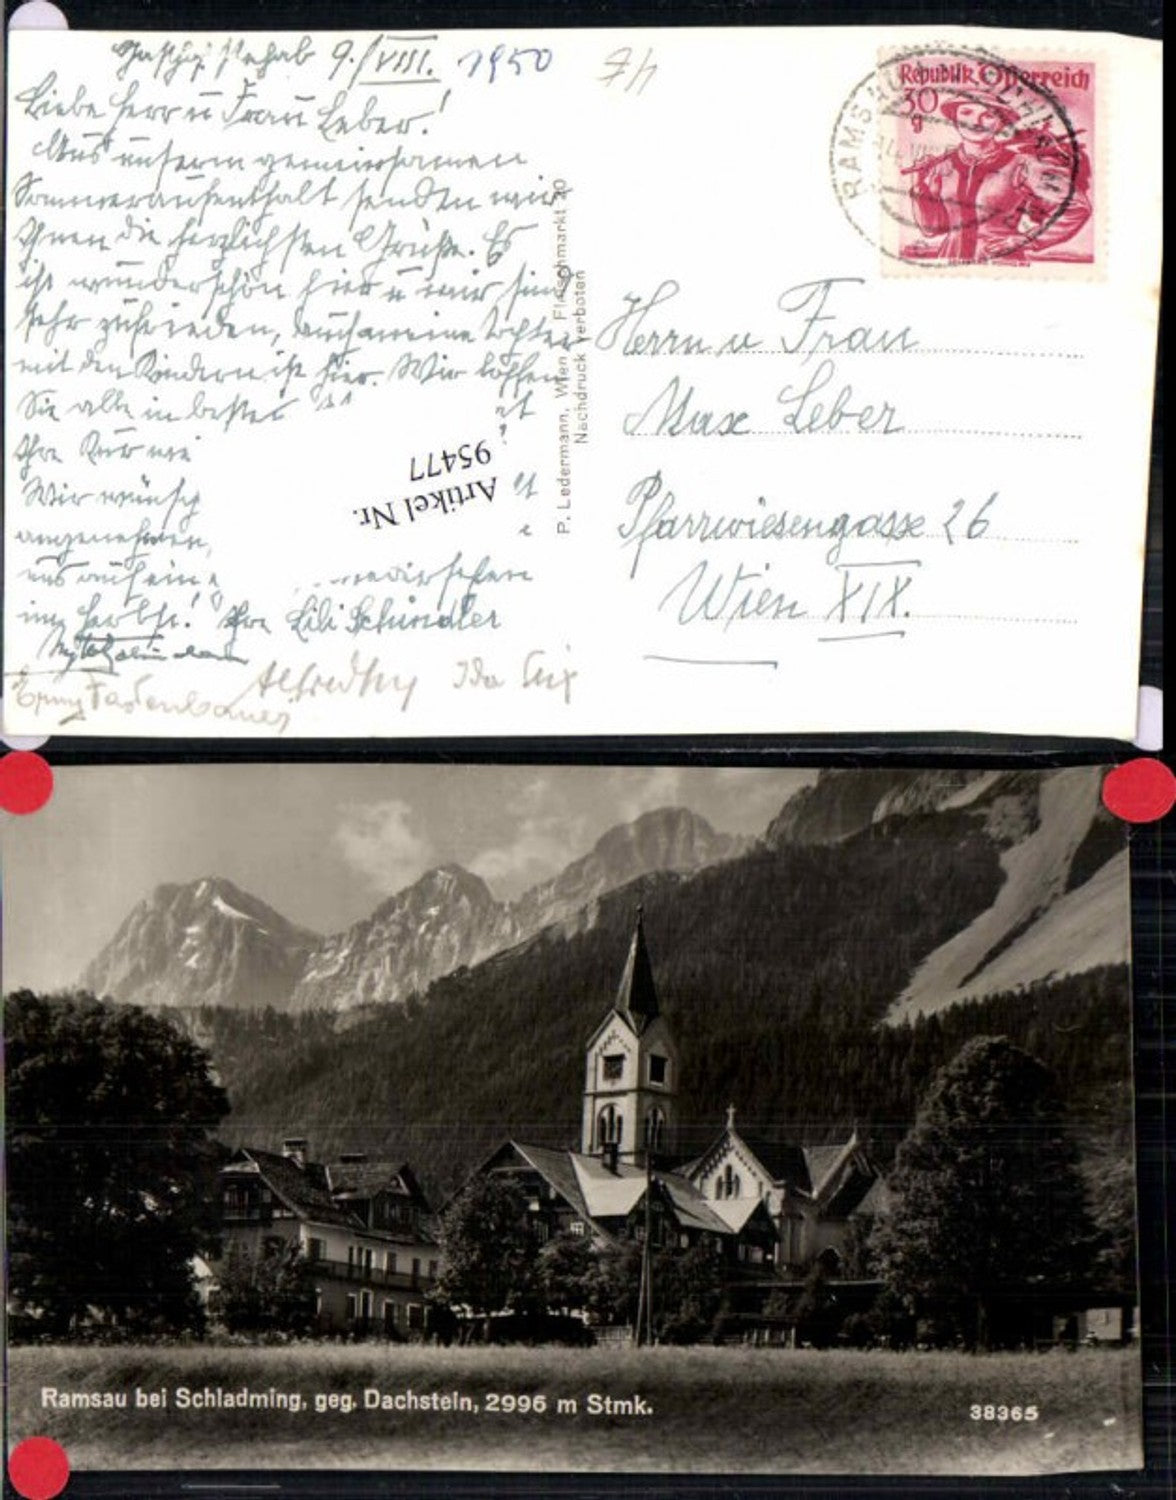 9./VIII. 1950
74
Liebe Herr u Frau Leber!
Aus unserem gemeinsamen
Sommeraufenthalt senden wir
Ihnen die herzlichsten Grüße. Es
ist wunderschön hier u wir sind
sehr zufrieden, auch meine Tochter
mit den Kindern ist hier. Wir hoffen
Sie alle in bester
Ihre Kur
Wir wünsch
angenehmen,
uns auf ein wiedersehen
im Herbst! Ihre Lili Schindler
Ida
Artikel Nr.
95477
P. Ledermann, Wien I, Fleischmarkt 20
Nachdruck verboten
Republik Österreich
30
g
RAMSAU
Herrn u Frau
Max Leber
Pfarrwiesengasse 26
Wien XIX.
Ramsau bei Schladming, geg. Dachstein, 2996 m Stmk.
38365